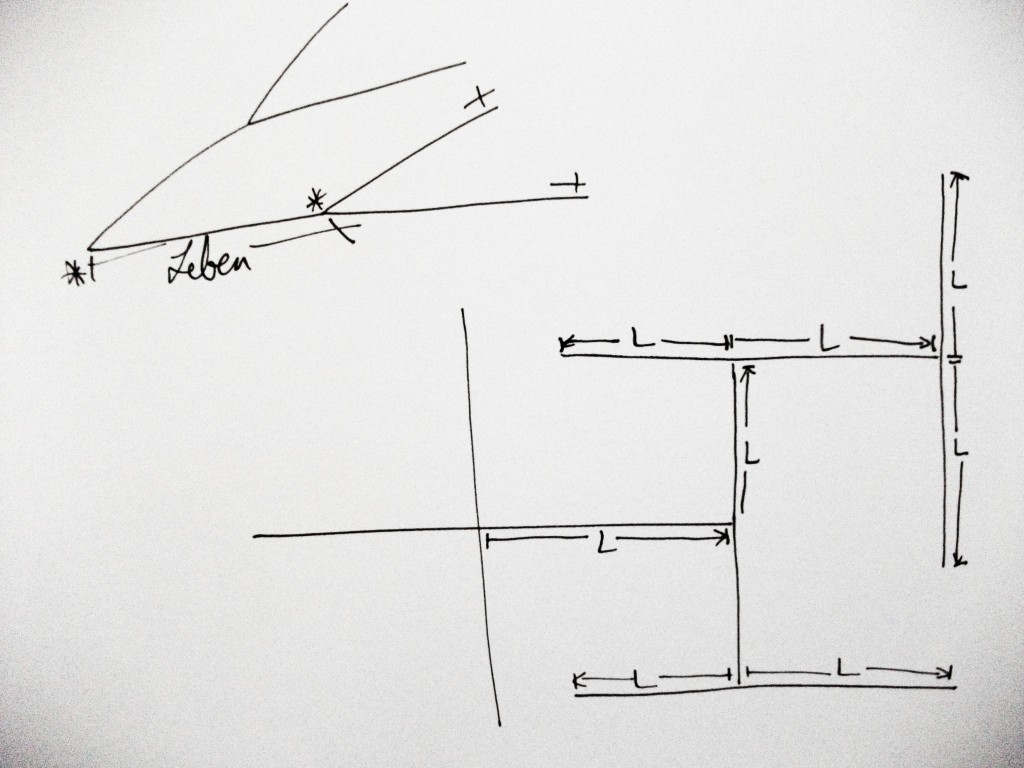 Leben
L L
L
L
L
L
L L